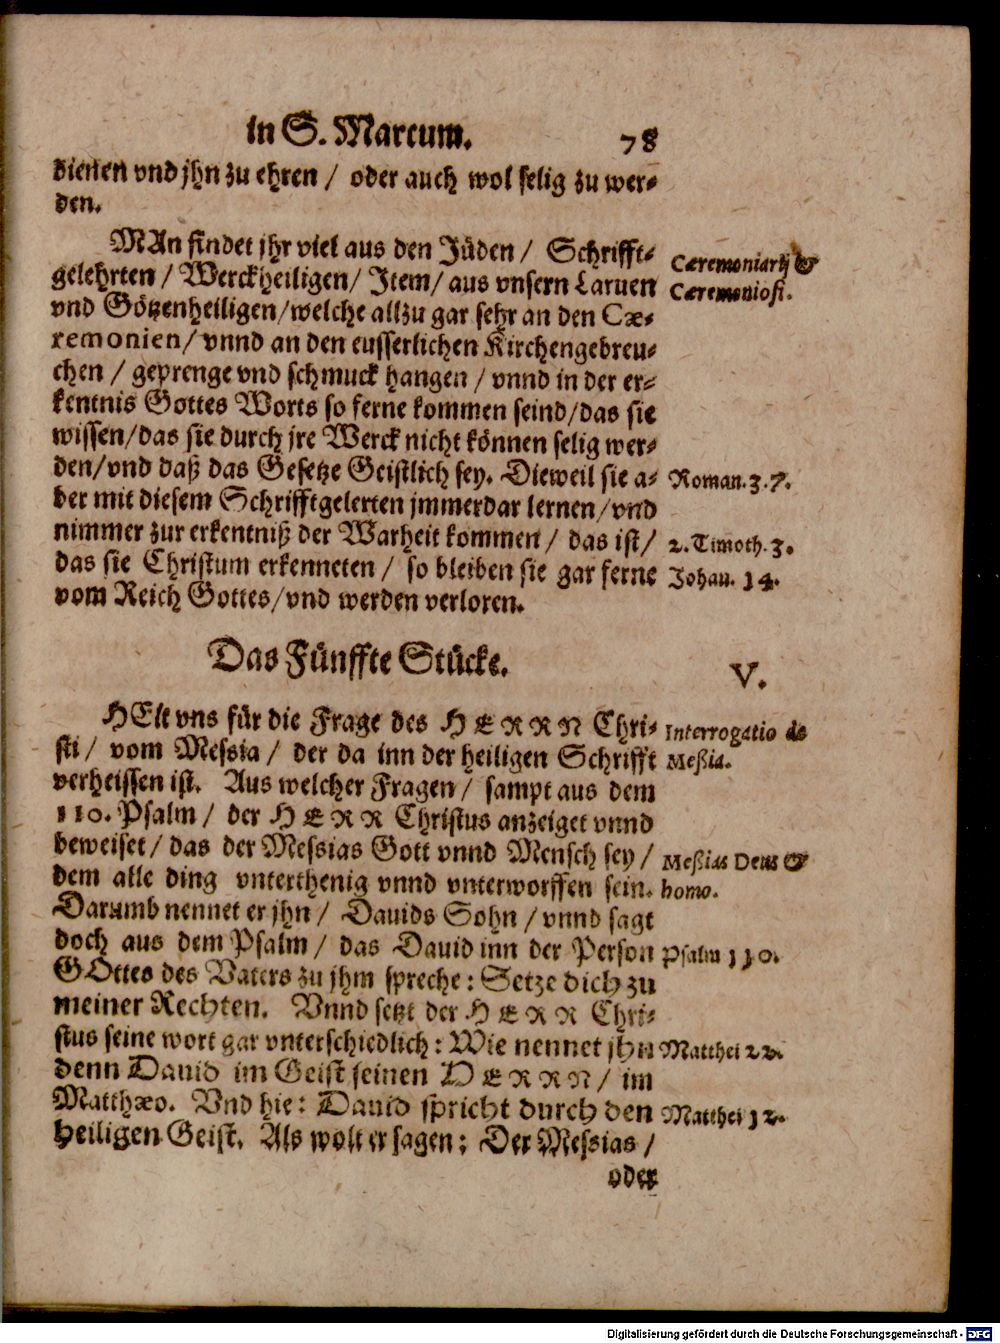 in S. Marcum. 78
dienen vnd jhn zu ehren / oder auch wol selig zu wer-
den.
MAn findet jhr viel aus den Jüden / Schrifft-
gelehrten / Werckheiligen / Item / aus vnsern Laruen
vnd Götzenheiligen / welche allzu gar sehr an den Cæ-
remonien / vnnd an den eusserlichen Kirchengebreu-
chen / geprenge vnd schmuck hangen / vnnd in der er-
kentnis Gottes Worts so ferne kommen seind / das sie
wissen / das sie durch jre Werck nicht können selig wer-
den / vnd daß das Gesetze Geistlich sey. Dieweil sie a-
ber mit diesem Schrifftgelerten jmmerdar lernen / vnd
nimmer zur erkentniß der Warheit kommen / das ist /
das sie Christum erkenneten / so bleiben sie gar ferne
vom Reich Gottes / vnd werden verloren.
Cæremoniarij &
Cæremoniosi.
Roman. 3. 7.
2. Timoth. 3.
Johan. 14.
Das Fünffte Stücke.
V.
HElt vns für die Frage des HERRN Chri-
sti / vom Messia / der da inn der heiligen Schrifft
verheissen ist. Aus welcher Fragen / sampt aus dem
110. Psalm / der HERR Christus anzeiget vnnd
beweiset / das der Messias Gott vnnd Mensch sey /
dem alle ding vnterthenig vnnd vnterworffen sein.
Darumb nennet er jhn / Dauids Sohn / vnnd sagt
doch aus dem Psalm / das Dauid inn der Person
GOttes des Vaters zu jhm spreche: Setze dich zu
meiner Rechten. Vnnd setzt der HERR Chri-
stus seine wort gar vnterschiedlich: Wie nennet jhn
denn Dauid im Geist seinen HERRN / im
Matthæo. Vnd hie: Dauid spricht durch den
heiligen Geist. Als wolt er sagen: Der Messias /
oder
Interrogatio de
Meßia.
Meßias Deus &
homo.
Psalm 110.
Matthei 22.
Matthei 12.
Digitalisierung gefördert durch die Deutsche Forschungsgemeinschaft - DFG